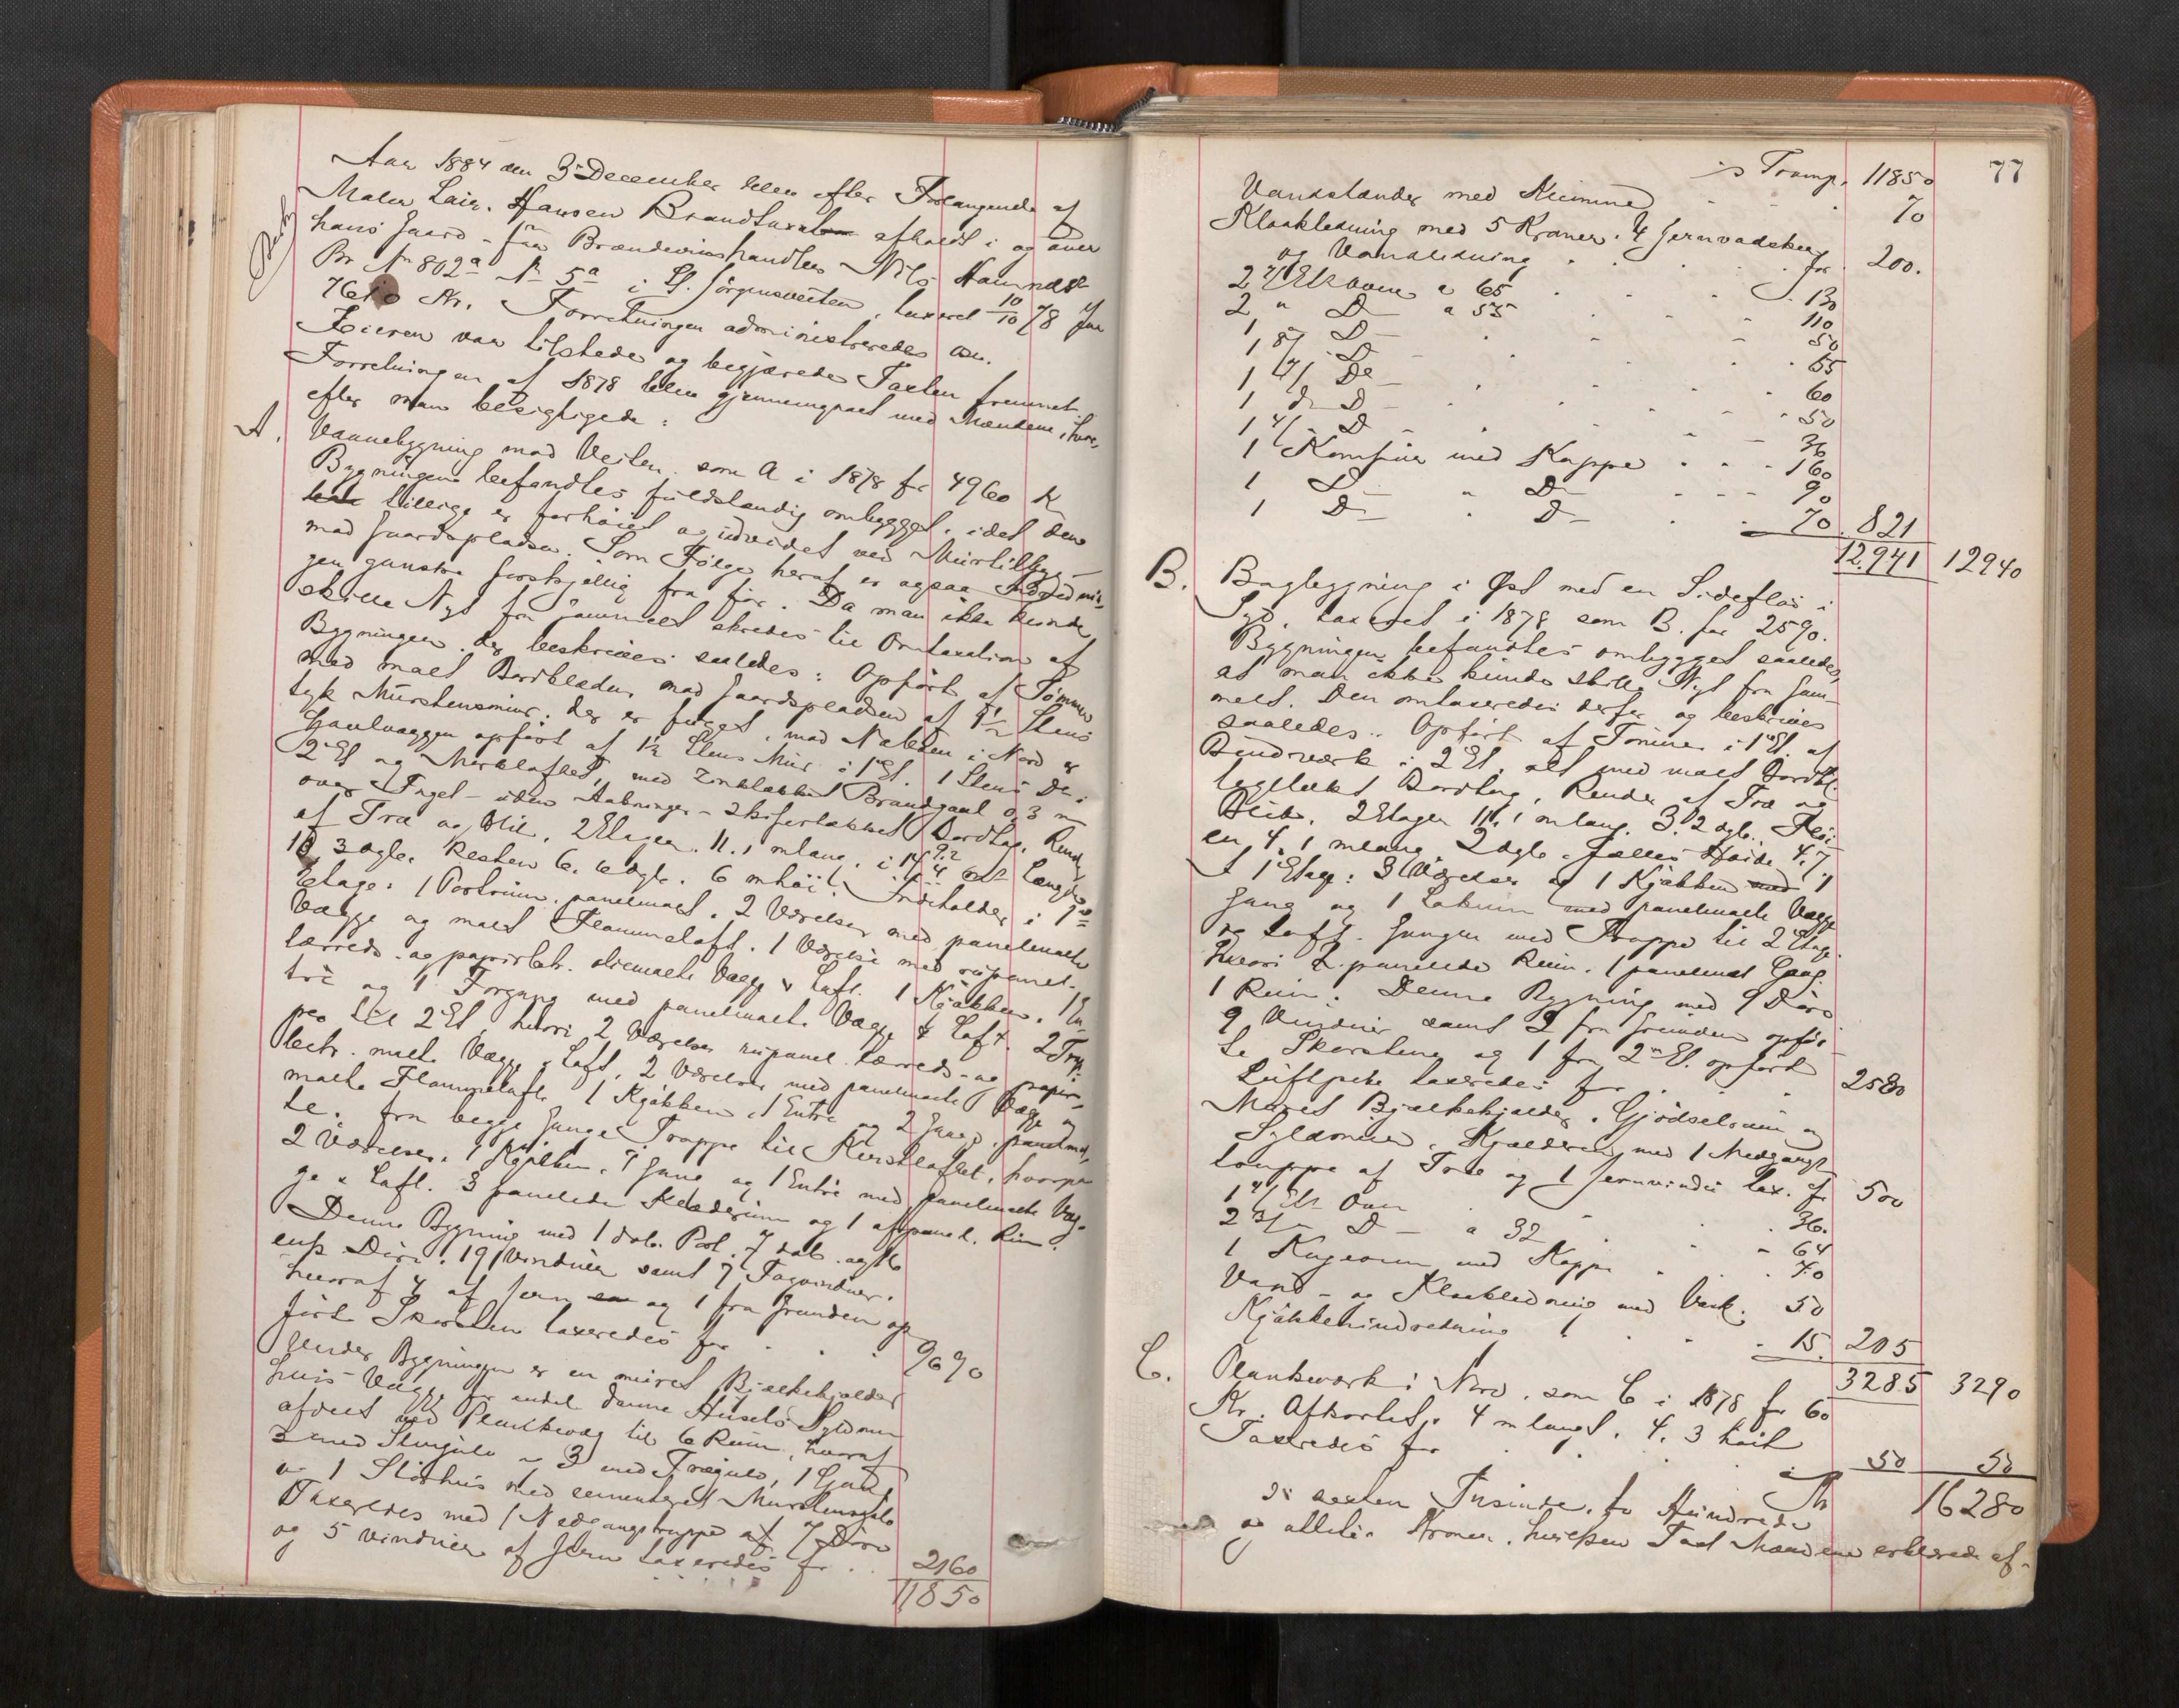 Aar 1884 den 3 December blev efter Forlangende af
Maler Laur. Hansen Brandtaxt afholdt i og over
hans Gaard - før Brændevinshandler Nils
Br No 802a No 5a i St. Jørgensveiten, taxeret 10/10 78 for
7610 Kr. Forretningen administreredes osv.
Eieren var tilstede og begjærede Taxten fremmet.
Forretningen af 1878 blev gjennemgaaet med Mændene, hvor-
efter man besigtigede:
A. Vaanebygning mod Veiten som A i 1878 for 4960 K
Bygningen befandtes fuldstændig ombygget, idet den
tillige er forhøiet og udvidet ved Murtilbyg-
mod Gaardspladsen. Som Følge heraf er ogsaa Indrednin-
gen ganske forskjellig fra før. Da man ikke kunde
skille Nyt fra Gammelt skredes til Omtaxation af
Bygningen, der beskrives saaledes: Opført af Tømmer
med malt Bordklædn. mod Gaardspladsen af 1/2 Stens
tyk Murstensmur, der er fuget, mod Naboen i Nord er
Gavlvæggen opført af 1½ Stens Mur i 1 Et. 1 Stens Do i
2 Et og Mørkloftet, med Zinktækket Brandgavl 0.3 m
over Taget - uden Aabninger - Skifertækket Bordtag, Rend
af Træ og Blik, 2 Etager, 11.1 m lang, i 9.2 Længde
10.3 dyb, Resten 6.6 dyb. 6 m høi. Indeholder i 1ste
Etage: 1 Portrum, panelmalt, 2 Værelser med panelmalte
Vægge og malt Flammeloft. 1 Værelse med rupanel.
lærreds- og papirbetr. oliemalte Vægge & Loft. 1 Kjøkken, 1 En-
tre og 1 Forgang med panelmalte Vægge & Loft. 2 Trap-
per til 2 Et, hvori 2 Værelser rupanel. lærreds- og papir-
betr. malte Vægge & Loft, 2 Værelser med panelmalte Vægge og
malte Flammeloft, 1 Kjøkken, 1 Entre og 2 Gange, panelmal-
te. Fra begge Gange Trappe til Mørkloftet, hvorpaa
2 Værelser, 1 Kjøkken, 1 Gang og 1 Entre med panelmalte Væg-
ge & Loft. 3 panelede Klæderum og 1 afpanel. Rum.
Denne Bygning med 1 dob. Port, 7 dob. og 16
enk Døre, 19 Vinduer samt 7 Tagvinduer,
hvoraf 4 af Jern og 1 fra Grunden op-
førte Skorsten taxeredes for . . . 9690
Under Bygningen er en muret Bjælkekjælder
hvis Vægge for endel danne Husets Syldmur
afdelt ved Plankevæg til 6 Rum, hvoraf
3 med Stengulv og 3 med Trægulv, 1 Gang
og 1 med cementeret Murstensgulv
Taxeredes med 1 Nedgangstrappe af 7 Døre
og 5 Vinduer af Jern taxeredes for . . 2160
11850
77
Transp. 11850
Vandstænder med Kumme . . . 70
Kloakledning med 5 Kraner, 4 Jernvadske
og Vandledning . . . for 200.
2 3/ Et Ovne a 65 . . . 130
2 " D- a 55 . . . 110
1 8/ D- . . . 50
1 D- . . . 65
1 4/ Do - . . . 60
1 D - . . . 50
1 4/ D . . . 36
1 Komfur med Kappe . . . 160
1 D- " D- . . . 90
1 D- . D- . . 70. 821
12.941 12940
B. Bagbygning i Øst med en Sidefløi i
Syd, taxeret i 1878 som B. for 2590.
Bygningen befandtes ombygget saaledes,
at man ikke kunde skille Nyt fra Gam-
melt. Den omtaxeredes derfor og beskrives
saaledes: Opført af Tømmer i 1 Et. af
Bindværk i 2 Et, alt med malt Bordkl.
teglstækt Bordtag, Render af Træ og
Blik, 2 Etager 11.1 m lang. 3.2 dyb. Fløi-
en 4.1 m lang 2 dyb. fælles Høide 4.7.
I 1 Etage: 3 Værelser og 1 Kjøkken 1
Gang og 1 med panelmalte Vægge
og Loft. Gangen med Trappe til 2 Etage
hvori 2 panelede Rum. 1 panelmalt Gang
1 Rum. Denne Bygning med 9 Døre
9 Vinduer samt 2 fra Grunden opfør-
te Skorstene og 1 fra 2 Et. opført
Luftpibe taxeredes for . . . 2580
Muret Bjælkekjælder, Gjødselrum og
Syldmure. Kjælderen med 1 Nedgangs
trappe af Træ og 1 Jernvindu tax. for 500
1 4/ Et Ovn . . . 36.
2 3/ D - a 32 . . . 64
1 Kogeovn med Kappe . . . 40
Vand- og Kloakledning med Vask. 50
Kjøkkenindretning . . . 15. 205
3285 3290
C. Plankeværk i Nord, som C i 1878 for 60
Kr. Afkortet, 4 m langt. 4.3 høit
Taxeredes for . . . 50 50
Kr 16280
er sexten Tusinde, to Hundrede
og otteti Kroner, hvilken Taxt Mændene erklærede af-